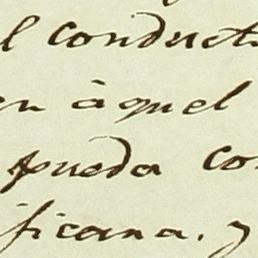 l conduct
en àquel
pueda co
ficana. y